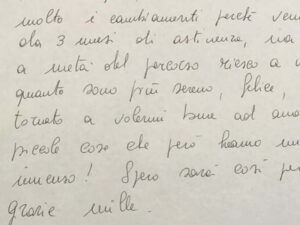 molto i cambiamenti perché
da 3 mesi di astinenza,
a metà del percorso riesco a
quanto sono più sereno, felice,
tornato a volermi bene ad
piccole cose che però hanno un
immenso! Spero sarà così per
grazie mille.